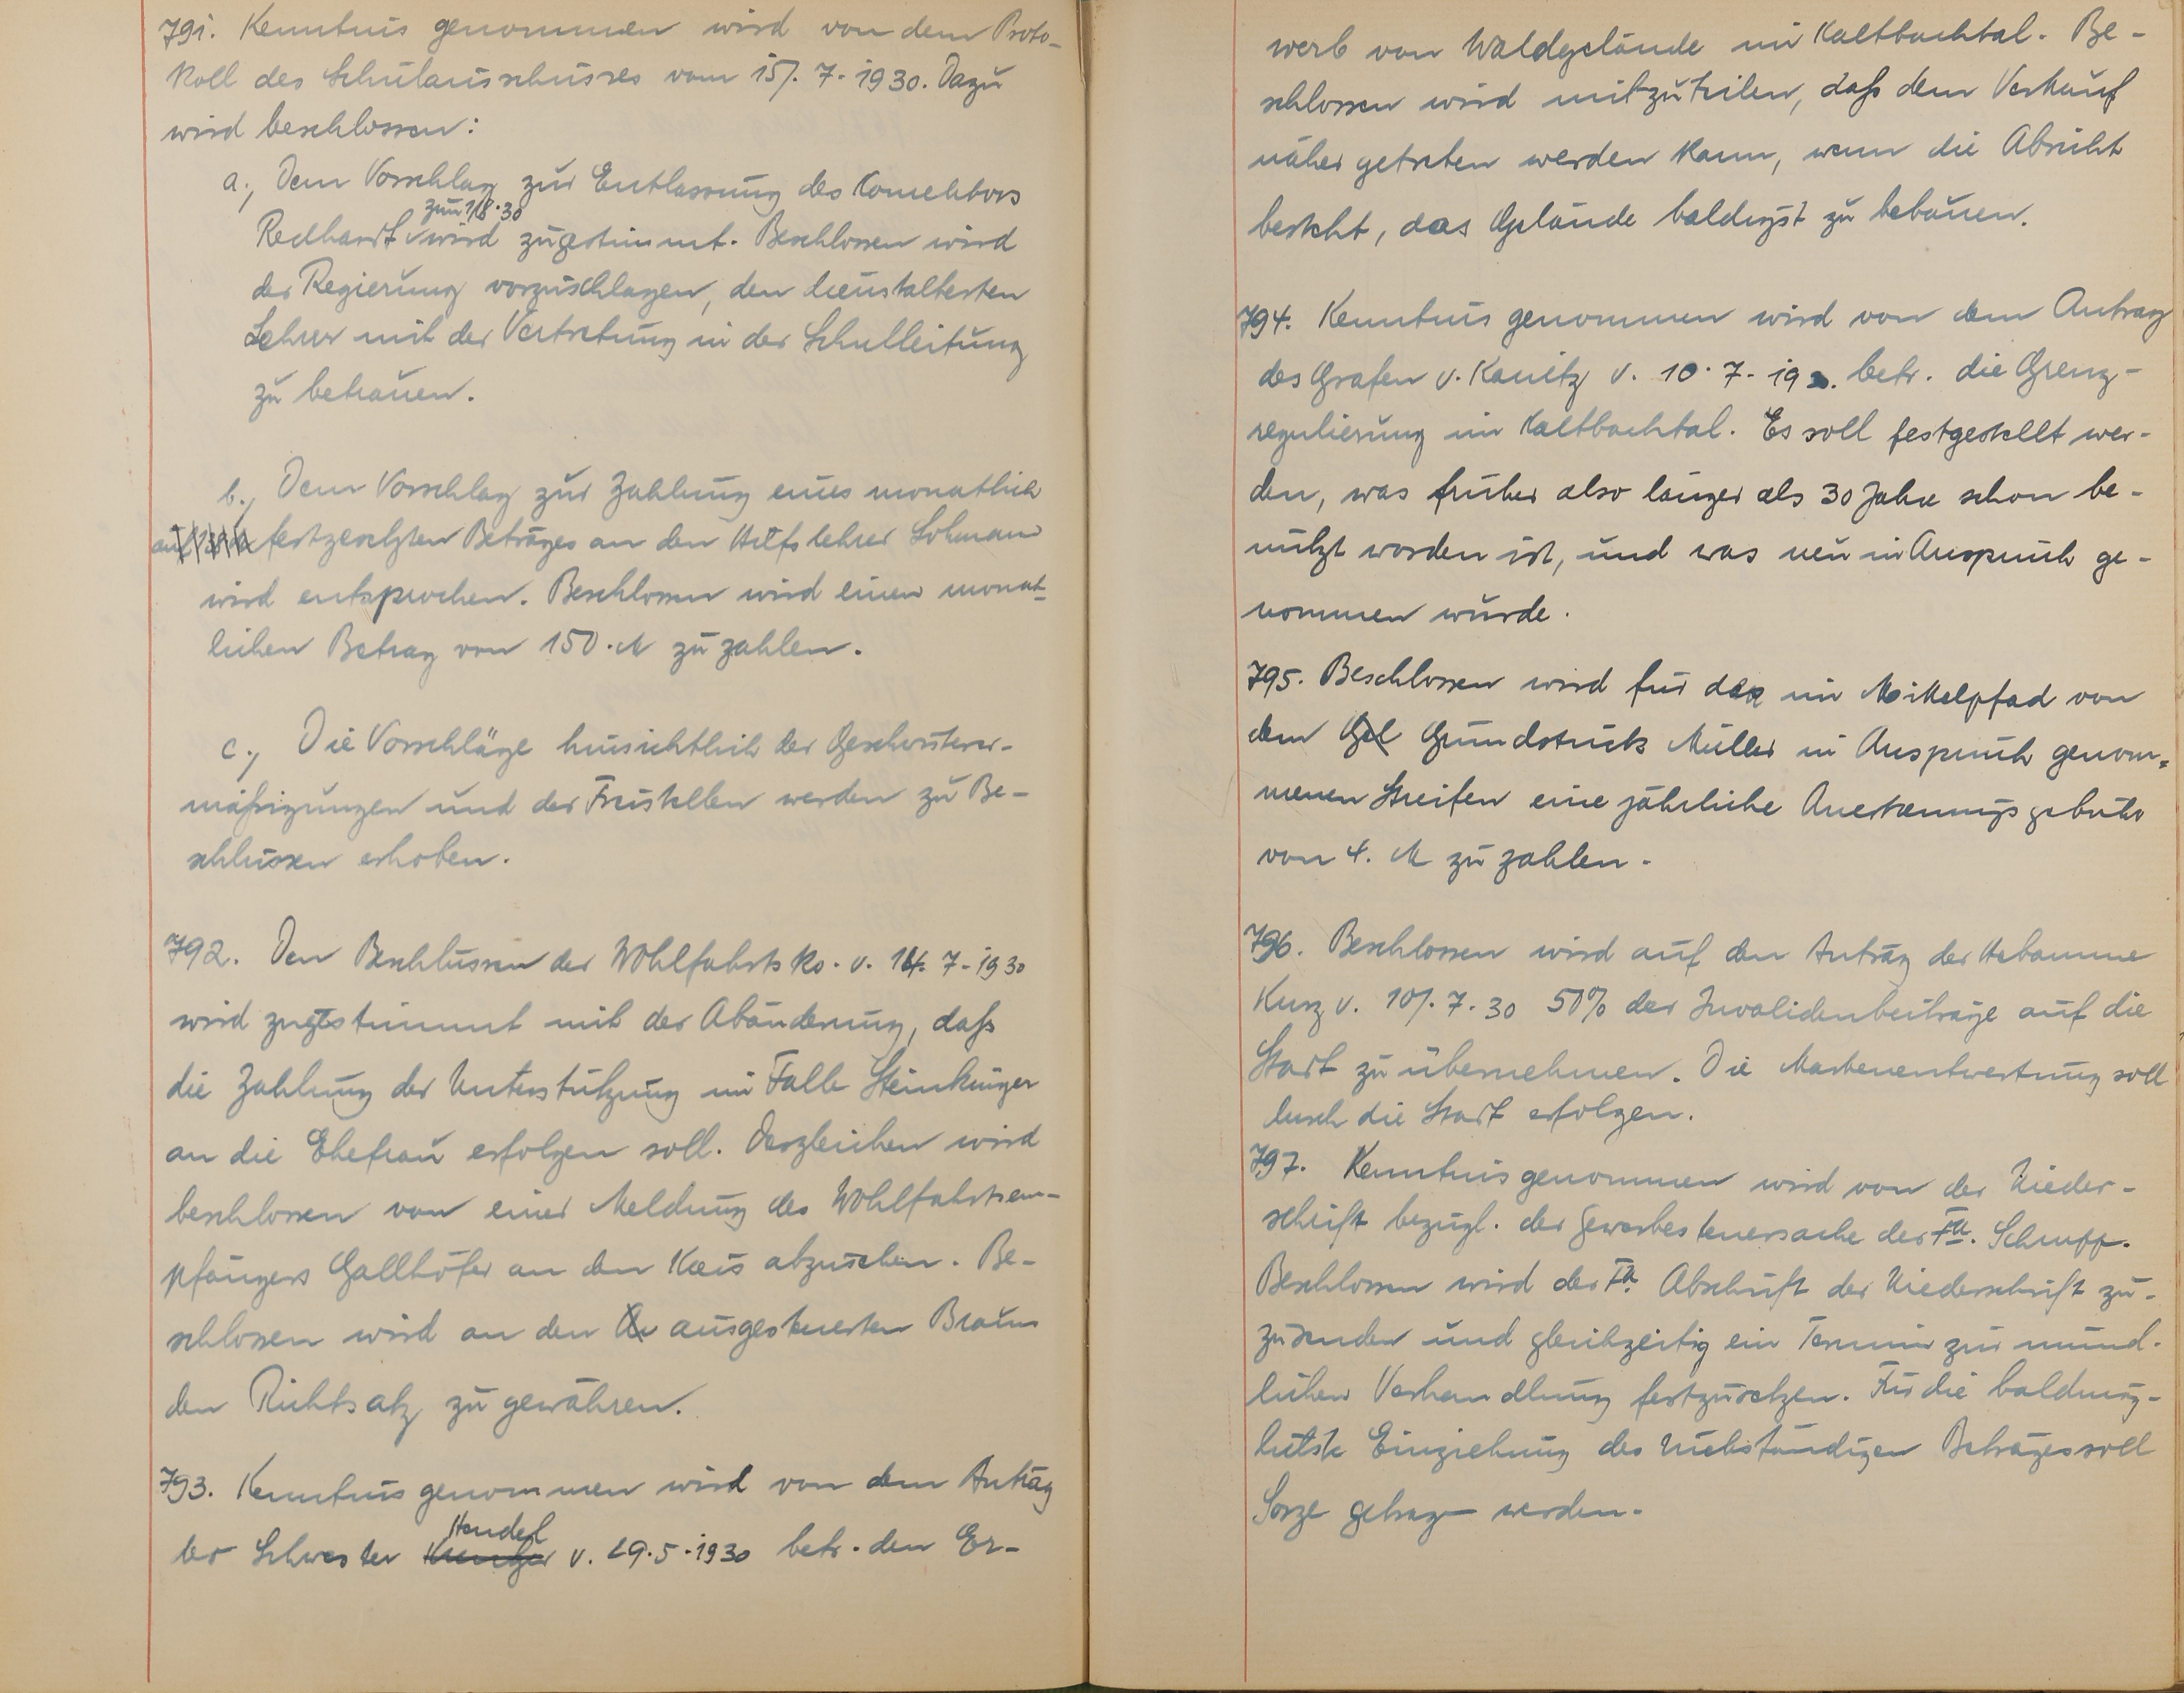 791. Kenntnis genommen wird von dem Proto-
koll des Schulausschusses vom 15/. 7. 1930. Dazu
wird beschlossen:
a., Dem Vorschlag zur Entlassung des Konrektors
zum 1/8.30
Redhardt wird zugestimmt. Beschlossen wird
der Regierung vorzuschlagen, den dienstältesten
Lehrer mit der Vertretung in der Schulleitung
zu betrauen.
b., Dem Vorschlag zur Zahlung eines monatlich
festgesetzten Betrages an den Hilfslehrer Lohmann
wird entsprochen. Beschlossen wird einen monat-
lichen Betrag von 150. M zu zahlen.
c., Die Vorschläge hinsichtlich der Geschwisterer-
mäßigungen und der Freistellen werden zu Be-
schlüssen erhoben.
792. Den Beschlüssen der Wohlfahrtsko. v. 14. 7. 1930
wird zugestimmt mit der Abänderung, daß
die Zahlung der Unterstützung im Falle Steinkrüger
an die Ehefrau erfolgen soll. Desgleichen wird
beschlossen von einer Meldung des Wohlfahrtsem-
pfängers Gallhöfer an den Kreis abzusehen. Be-
schlossen wird an den ausgesteuerten Braun
den Richtsatz zu gewähren.
793. Kenntnis genommen wird von dem Antrag
Hendel
der Schwester v. 29.5.1930 betr. den Er-
werb von Waldgelände im Kaltbachtal. Be-
schlossen wird mitzuteilen, daß dem Verkauf
näher getreten werden kann, wenn die Absicht
besteht, das Gelände baldigst zu bebauen.
794. Kenntnis genommen wird von dem Antrag
des Grafen v. Kanitz v. 10. 7. betr. die Grenz-
regulierung im Kaltbachtal. Es soll festgestellt wer-
den, was früher also länger als 30 Jahre schon be-
nutzt worden ist, und was neu in Anspruch ge-
nommen wurde.
795. Beschlossen wird für den im Mittelpfad von
dem Grundstück Müller in Anspruch genom-
menen Streifen eine jährliche Anerkennungsgebühr
von 4. M zu zahlen.
796. Beschlossen wird auf den Antrag der Hebamme
Kurz v. 10/. 7. 30 50% der Invalidenbeiträge auf die
Stadt zu übernehmen. Die Markenentwertung soll
durch die Stadt erfolgen.
797. Kenntnis genommen wird von der Nieder-
schrift bezügl. der Gewerbesteuersache der Fa. Schruff.
Beschlossen wird der Fa. Abschrift der Niederschrift zu-
zusenden und gleichzeitig ein Termin zur münd-
lichen Verhandlung festzusetzen. Für die baldmög-
lichste Einziehung des rückständigen Betrages soll
Sorge getragen werden.